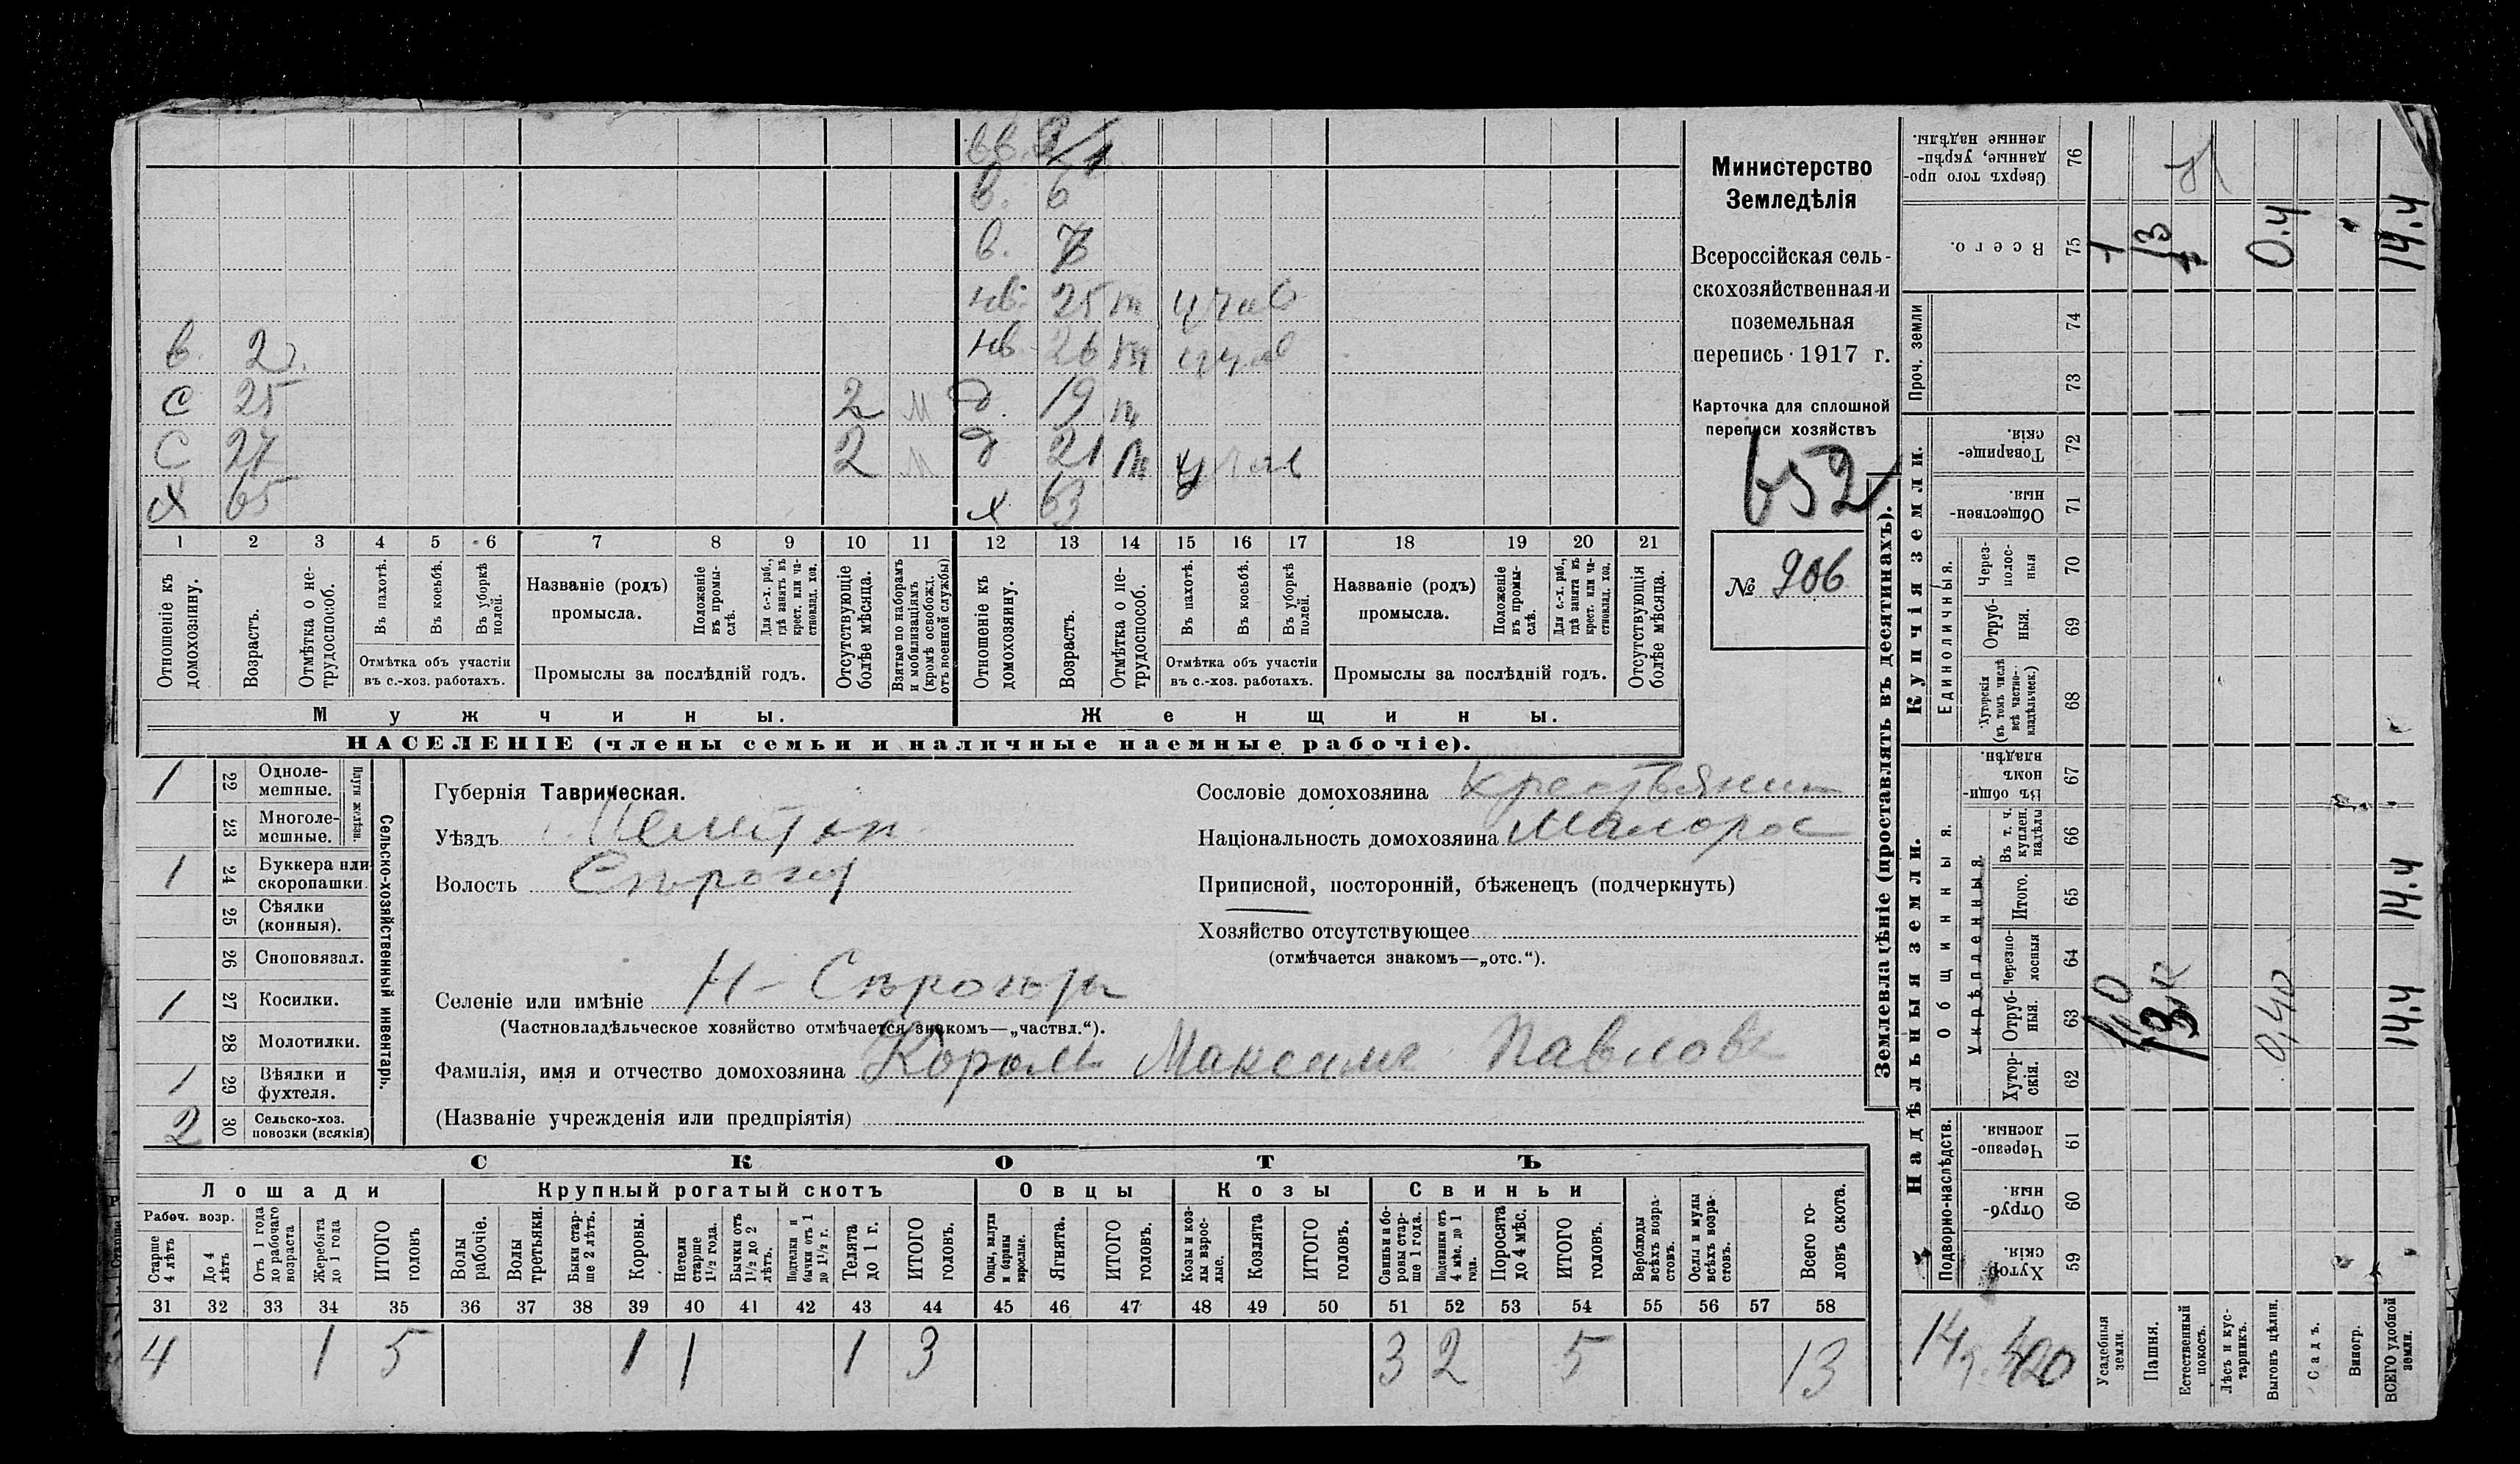 вв. 2/1
в. 6
в. 7
нв. 25 т учав
в. 2 нв 26 т учав
С 25 2 м д. 19 т
С 27 2 м д 21 т учав
Х 65 х 63
1 2 3 4 5 6 7 8 9 10 11 12 13 14 15 16 17 18 19 20 21
Отношеніе къ домохозяину.
Возрастъ.
Отмѣтка о не-трудоспособ.
Въ пахотѣ.
Въ косьбѣ.
Въ уборкѣ полей.
Отмѣтка объ участіи въ с.-хоз. работахъ.
Названіе (родъ) промысла.
Положеніе въ промы-слѣ.
Для с.-х. раб., гдѣ занятъ въ крест. или ча-стновлад. хоз.
Промыслы за послѣдній годъ.
Отсутствующіе болѣе мѣсяца.
Взятые по наборамъ и мобилизаціямъ (кромѣ освобожд. отъ военной службы)
Отношеніе къ домохозяину.
Возрастъ.
Отмѣтка о не-трудоспособ.
Въ пахотѣ.
Въ косьбѣ.
Въ уборкѣ полей.
Отмѣтка объ участіи въ с.-хоз. работахъ.
Названіе (родъ) промысла.
Положеніе въ промы-слѣ.
Для с.-х. раб., гдѣ занята въ крест. или ча-стновлад. хоз.
Промыслы за послѣдній годъ.
Отсутствующія болѣе мѣсяца.
Мужчины. Женщины.
НАСЕЛЕНІЕ (члены семьи и наличные наемные рабочіе).
Министерство
Земледѣлія
Всероссійская сель-
скохозяйственная и
поземельная
перепись 1917 г.
Карточка для сплошной
переписи хозяйствъ
652
№ 906
Сельско-хозяйственный инвентарь.
Плуги желѣзн.
1 22 Одноле-мешные.
23 Многоле-мешные.
1 24 Буккера или скоропашки.
25 Сѣялки (конныя).
26 Сноповязал.
1 27 Косилки.
28 Молотилки.
1 29 Вѣялки и фухтеля.
2 30 Сельско-хоз. повозки (всякія)
Губернія Таврическая.
Уѣздъ Мелитоп.
Волость Сѣрогоз
Селеніе или имѣніе Н-Сѣрогозы
(Частновладѣльческое хозяйство отмѣчается знакомъ—„частвл.“).
Фамилія, имя и отчество домохозяина Король Максимъ Павловъ
(Названіе учрежденія или предпріятія)
Сословіе домохозяина крестьянин
Національность домохозяина Малорос
Приписной, посторонній, бѣженецъ (подчеркнуть)
Хозяйство отсутствующее
(отмѣчается знакомъ—„отс.“).
СКОТЪ
Лошади Крупный рогатый скотъ Овцы Козы Свиньи
Рабоч. возр.
Старше 4 лѣтъ
До 4 лѣтъ
Отъ 1 года до рабочаго возраста
Жеребята до 1 года
ИТОГО головъ
Волы рабочіе.
Волы третьяки.
Быки стар-ше 2 лѣтъ.
Коровы.
Нетели старше 1½ года.
Бычки отъ 1½ до 2 лѣтъ.
Подтелки и бычки отъ 1 до 1½ г.
Телята до 1 г.
ИТОГО головъ.
Овцы, валухи и бараны взрослые.
Ягнята.
ИТОГО головъ.
Козы и коз-лы взрос-лые.
Козлята
ИТОГО головъ.
Свиньи и бо-ровы стар-ше 1 года.
Подсвинки отъ 4 мѣс. до 1 года.
Поросята до 4 мѣс.
ИТОГО головъ.
Верблюды всѣхъ возра-стовъ.
Ослы и мулы всѣхъ возра-стовъ.
Всего го-ловъ скота.
31 32 33 34 35 36 37 38 39 40 41 42 43 44 45 46 47 48 49 50 51 52 53 54 55 56 57 58
4 1 5 1 1 1 3 3 2 5 13
Землевладѣніе (проставлять въ десятинахъ).
Надѣльныя земли.
Купчія земли.
Проч. земли
Подворно-наслѣдств.
Общинныя.
Укрѣпленныя.
Единоличныя.
Сверхъ того про-данные, укрѣп-ленные надѣлы. 76
Всего. 75 1 13 0.4 14.4
74
73
Товарище-скія. 72
Обществен-ныя. 71
Через-полос-ныя 70
Отруб-ныя. 69
Хуторскія (въ томъ числѣ всѣ частно-владѣльческ.) 68
Въ общин-номъ владѣн. 67
Въ т. ч. куплен. надѣлы 66
Итого. 65 14.4
Черезпо-лосныя 64
Отруб-ныя. 63 1,0 13 0,40 14.4
Хутор-скія. 62
Черезпо-лосныя. 61
Отруб-ныя. 60
Хутор-скія. 59
Усадебныя земли.
Пашня.
Естественный покосъ.
Лѣсъ и кус-тарникъ.
Выгонъ цѣлин.
Садъ.
Виногр.
ВСЕГО удобной земли.